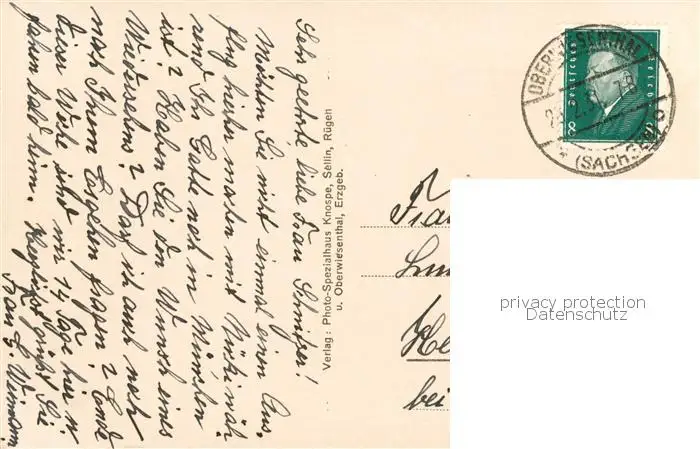 Sehr geehrte liebe Frau Schnitzer!
Möchten Sie nicht einmal einen Aus-
flug hierher machen mit
und Ihr Gatte noch in München
ist? Haben Sie den Wunsch eines
Wiedersehens? Darf ich auch noch
nach Ihrem Ergehen fragen? Ende
dieser Woche sind wir 14 Tage hier u
fahren bald heim. Herzlichst grüßt Sie
Frau E. Weimann
Verlag: Photo-Spezialhaus Knospe, Sellin, Rügen
u. Oberwiesenthal, Erzgeb.
OBERWIESENTHAL
(SACHSEN)
Deutsches Reich
8 8
Frau
He
bei
privacy protection
Datenschutz